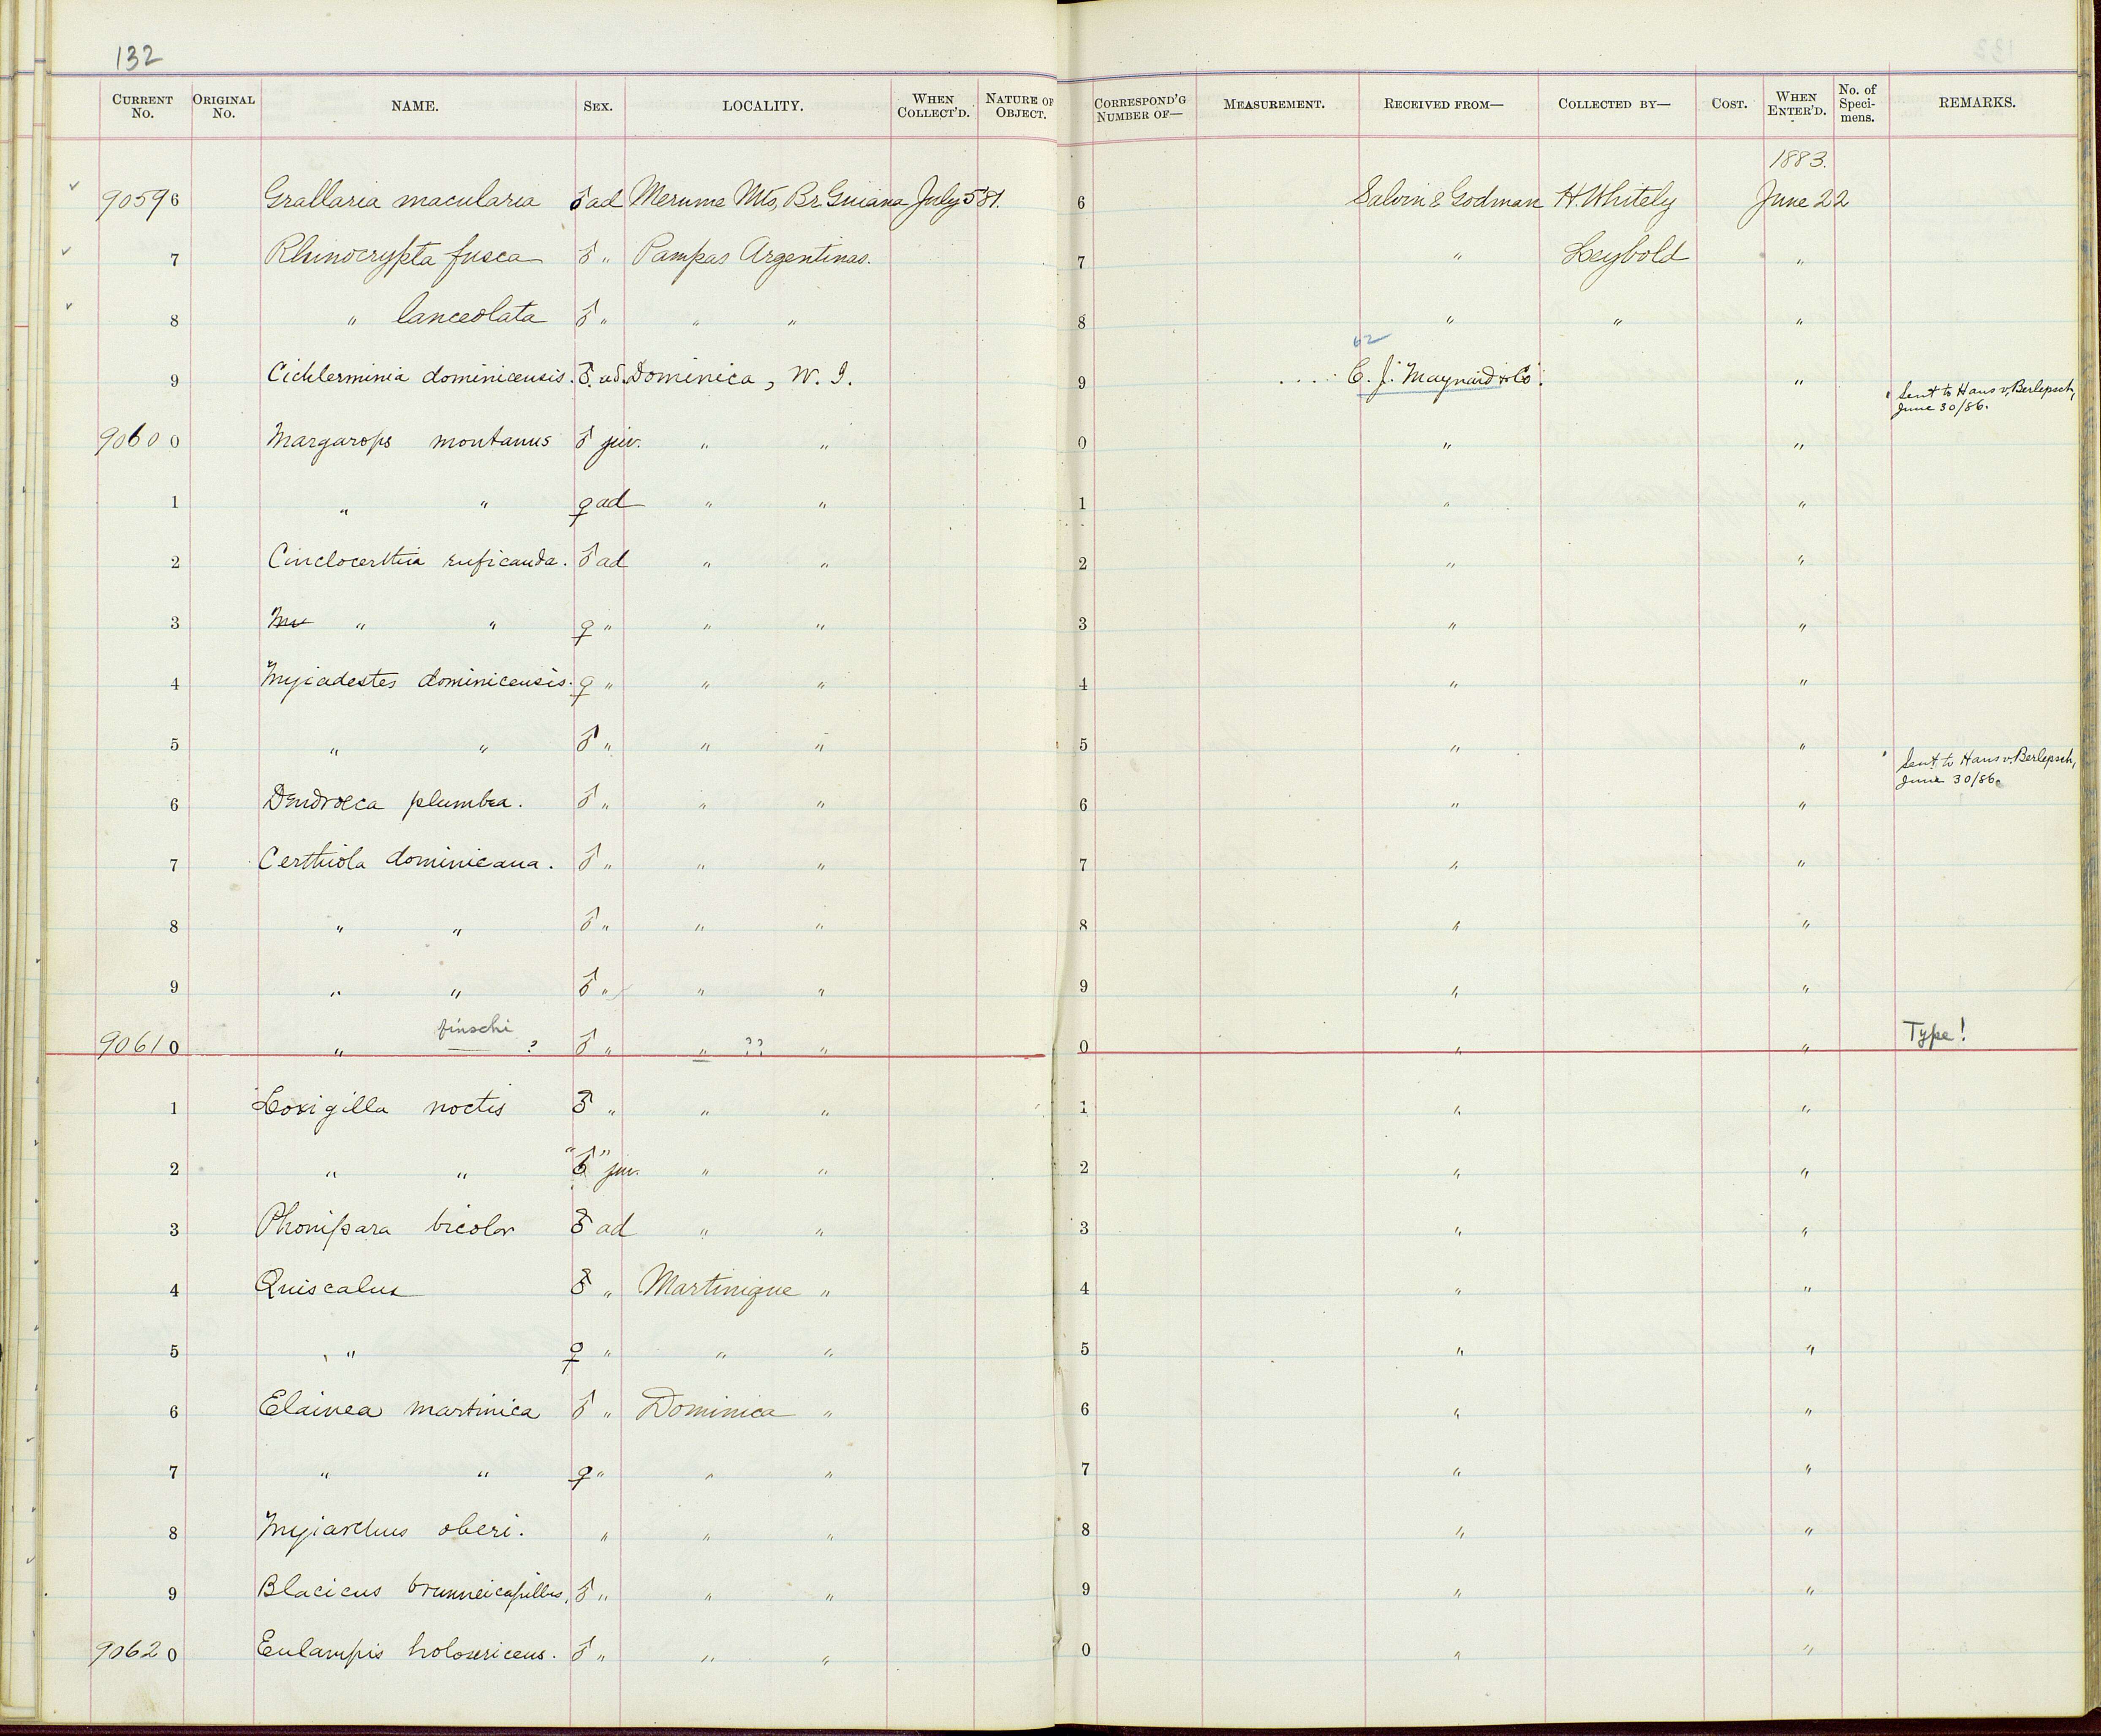 132
CURRENT No. ORIGINAL No. NAME. SEX. LOCALITY. WHEN COLLECT'D. NATURE OF OBJECT. CORRESPOND'G NUMBER OF— MEASUREMENT. RECEIVED FROM— COLLECTED BY— COST. WHEN ENTER'D. No. of Specimens. REMARKS.
1883.
90596 Grallaria macularia ♂ ad Merume Mts, Br. Guiana July 5 '81. 6 Salvin & Godman H. Whitely June 22
7 Rhinocrypta fusca ♂ " Pampas Argentinas. 7 " Leybold "
8 " lanceolata ♂ " " " 8 " " "
62
9 Cichlerminia dominicensis. ♂. ad. Dominica, W. I. 9 .... C. J. Maynard & Co. " Sent to Hans v. Berlepsch, June 30/86.
90600 Margarops montanus ♂ juv. " " 0 " "
1 " " ♀ ad " " 1 " "
2 Cinclocerthia ruficauda. ♂ ad " " 2 " "
3 " " ♀ " " " 3 " "
4 Myiadestes dominicensis. ♀ " " " 4 " "
5 " " ♂ " " " 5 " " Sent to Hans v. Berlepsch, June 30/86.
6 Dendroeca plumbea. ♂ " " " 6 " "
7 Certhiola dominicana. ♂ " " " 7 " "
8 " " ♂ " " " 8 " "
9 " " ♂ " " " 9 " "
finschi
90610 " ? ♂ " " ?? " 0 " " Type!
1 Loxigilla noctis ♂ " " " 1 " "
2 " " "♂" juv. " " 2 " "
3 Phonipara bicolor ♂ ad " " 3 " "
4 Quiscalus ♂ " Martinique " 4 " "
5 " ♀ " " " 5 " "
6 Elainea martinica ♂ " Dominica " 6 " "
7 " " ♀ " " " 7 " "
8 Myiarchus oberi. " " " 8 " "
9 Blacicus brunneicapillus, ♂ " " " 9 " "
90620 Eulampis holosericeus. ♂ " " " 0 " "